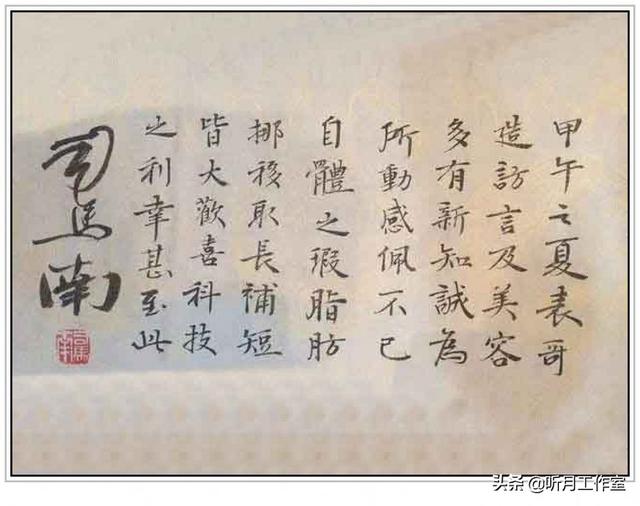 甲午之夏表哥
造訪言及美容
多有新知誠為
所動感佩不已
自體之瑕脂肪
挪移取長補短
皆大歡喜科技
之利幸甚至此
司馬南
头条@听月工作室